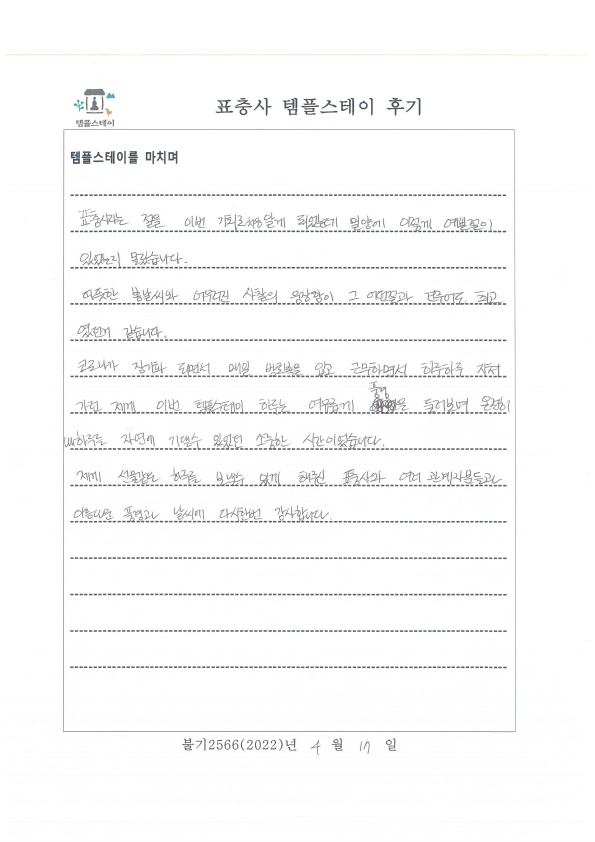 템플스테이
표충사 템플스테이 후기
템플스테이를 마치며
표충사라는 절을 이번 기회로 처음 알게 되었는데 밀양에 이렇게 예쁜절이
있었는지 몰랐습니다.
따뜻한 봄날씨와 어우러진 사찰의 웅장함이 그 어떤절과 견주어도 최고
였던거 같습니다.
코로나가 장기화 되면서 매일 방호복을 입고 근무하면서 하루하루 지쳐
가던 제게 이번 템플스테이 하루는 여유롭게 풍경을 둘러보며 온전히
하루를 자연에 기댈수 있었던 소중한 시간이었습니다.
제게 선물같은 하루를 보낼수 있게 해주신 표충사와 여러 관계자분들과
아름다운 풍경과 날씨에 다시한번 감사합니다.
불기2566(2022)년 4 월 17 일